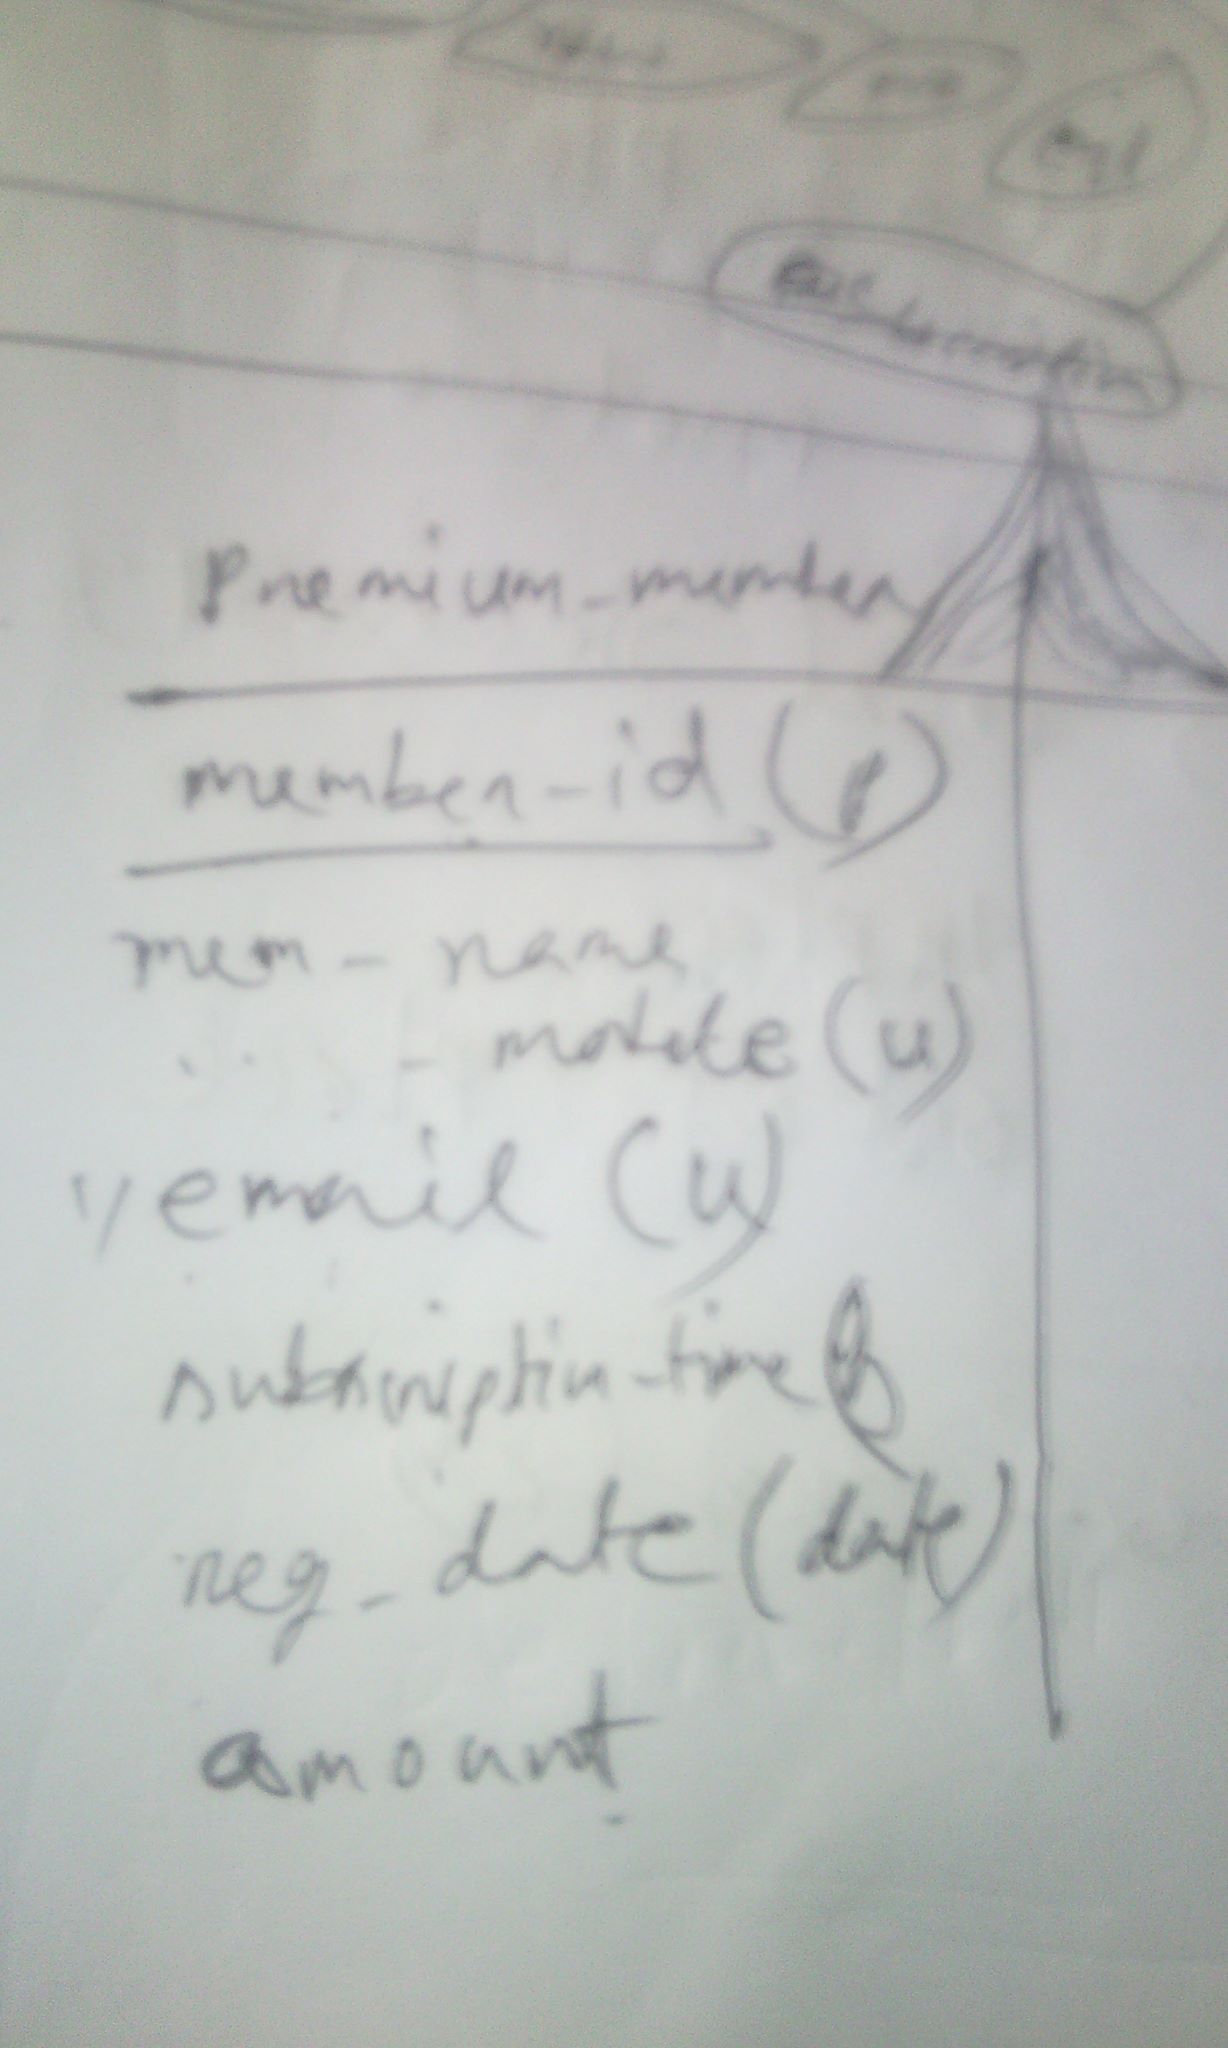 Premium_member
member-id (p)
mem - name
" - mobile (u)
" email (u)
subscription-time
reg_date (date)
amount